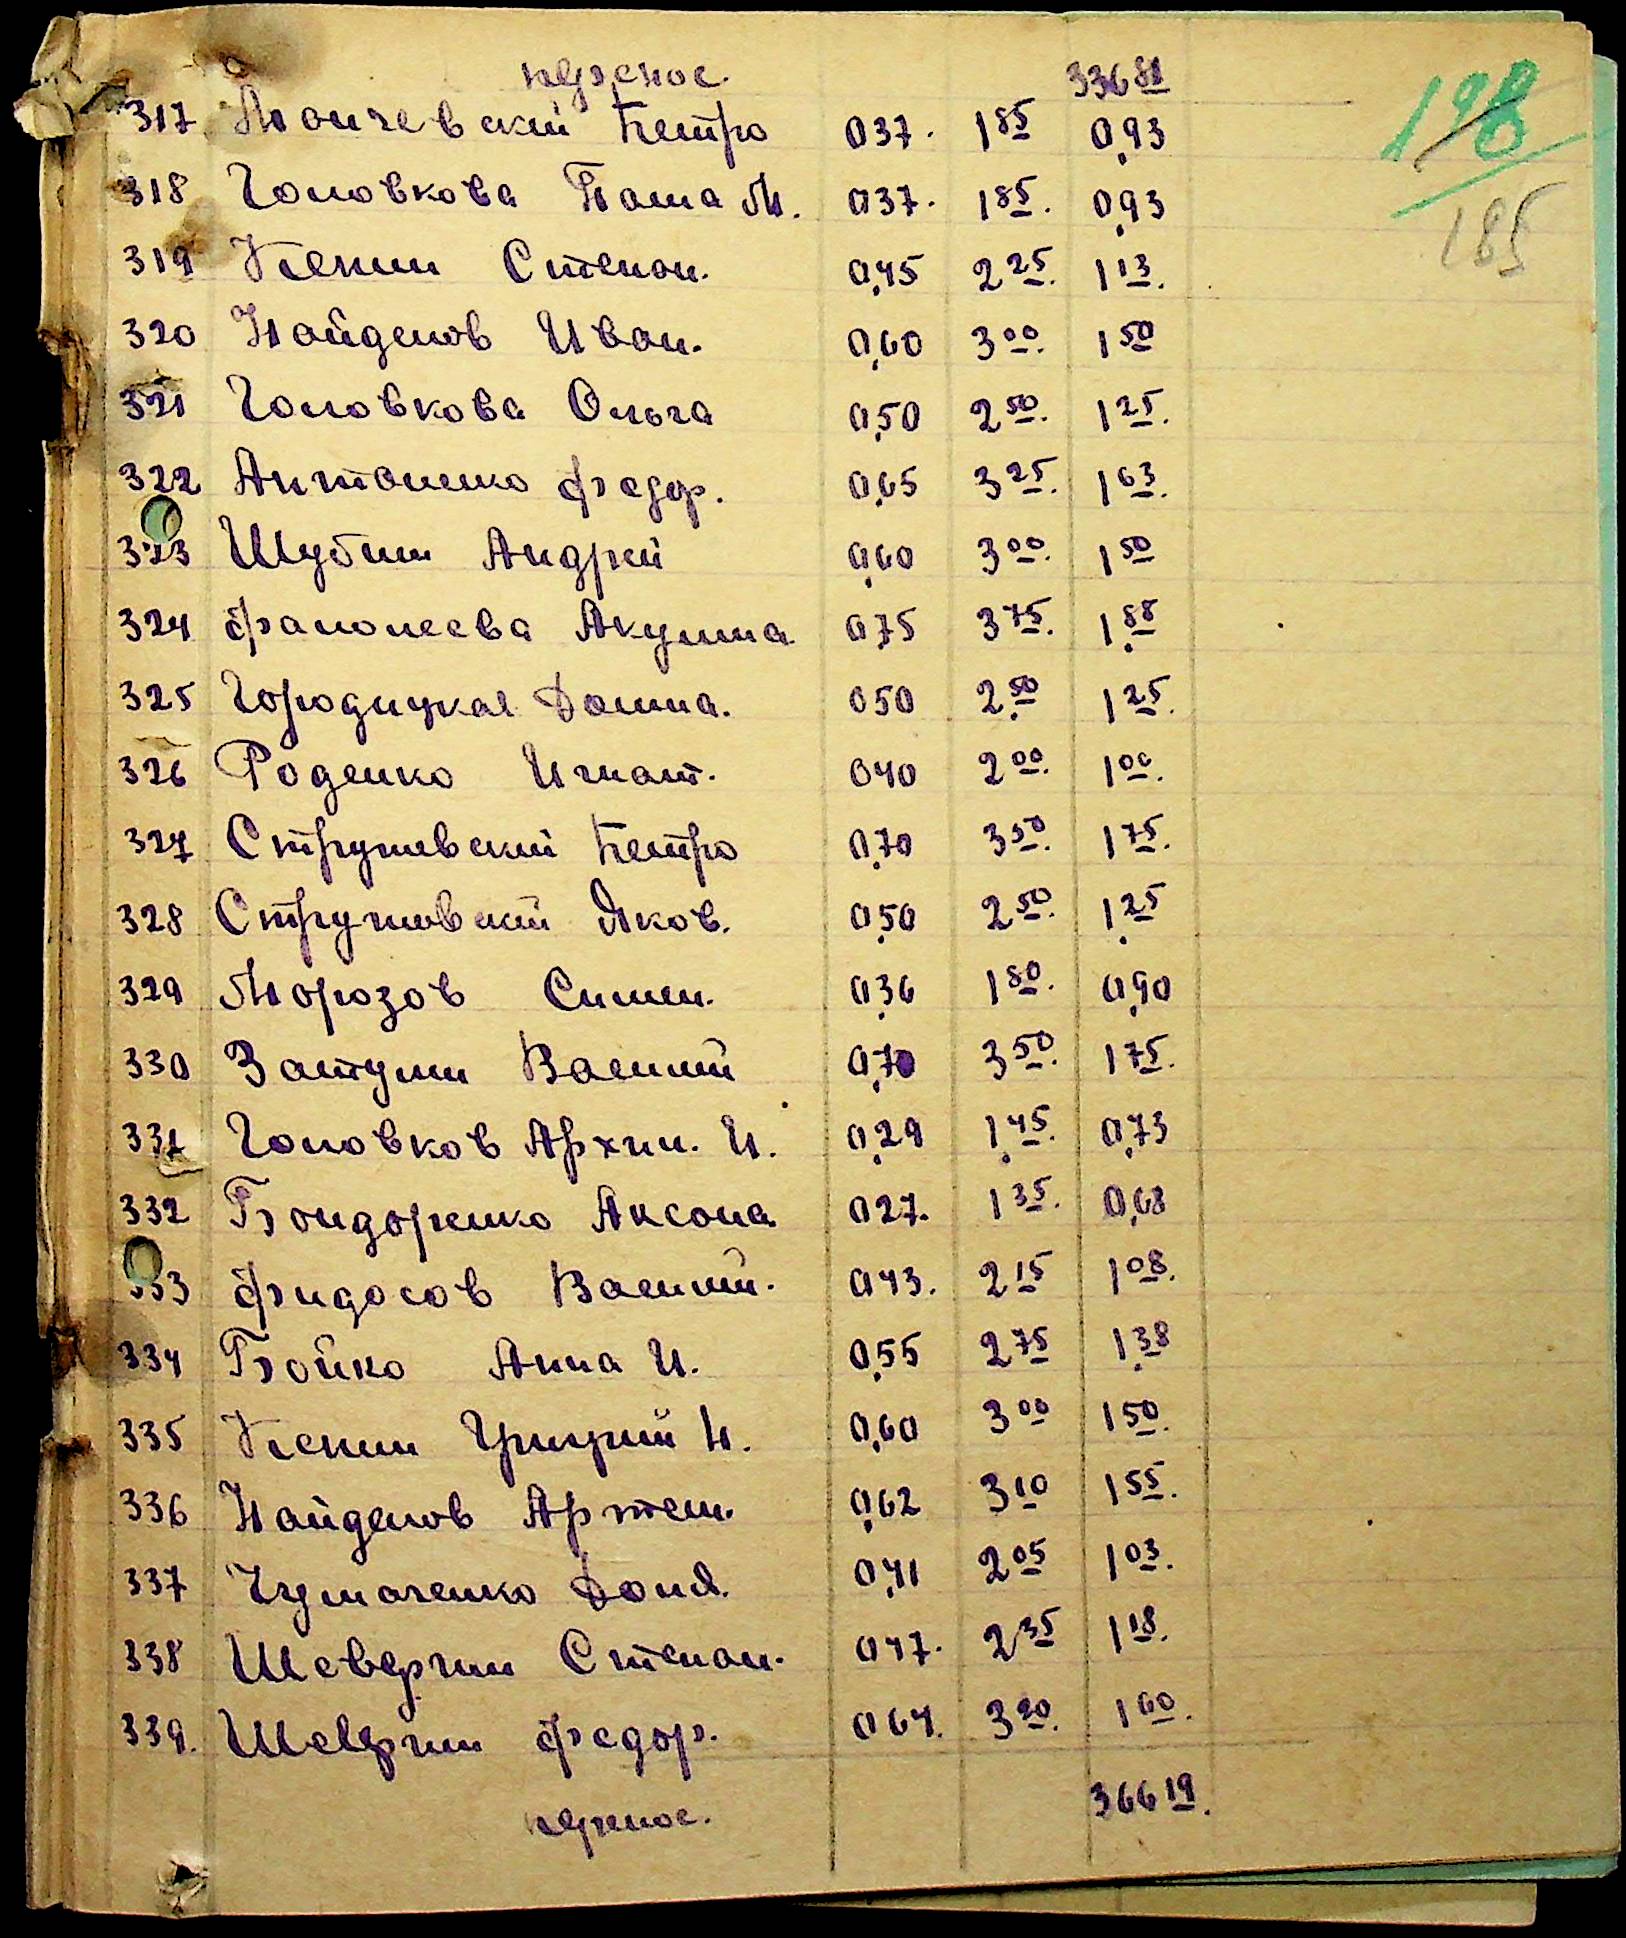 перенос. 336 81
317 Мончевский Петро 037. 1 85 0,93
318 Головкова Паша М. 037. 1 85. 0,93
319 Кенин Степан. 0,45 2 25. 1 13.
320 Найденов Иван. 0,60 3 00. 1 50
321 Головкова Ольга 0,50 2 50. 1 25.
322 Антоненко Федор. 0,65 3 25. 1 63.
323 Шубин Андрей 0,60 3 00. 1 50
324 Фалолеева Акулина 0,75 3 75. 1 88
325 Городицкая Домна. 050 2 50 1 25.
326 Роденко Игнат. 040 2 00. 1 00.
327 Струшевский Петро 0,70 3 50. 1 75.
328 Струшовский Яков. 0,50 2 50. 1 25
329 Морозов Симен. 0,36 1 80. 0,90
330 Затулин Василий 0,70 3 50. 1 75.
331 Головков Архип. И. 0,29 1 45. 0,73
332 Бондоренко Аксона 027. 1 35. 0,68
333 Фидосов Василий. 043. 2 15 1 08.
334 Бойко Анна И. 0,55 2 75 1,38
335 Кенин Григрий Н. 0,60 3 00 1 50.
336 Найденов Артем. 0,62 3 10 1 55.
337 Чумаченко Доня. 0,41 2 05 1 03.
338 Шевергин Степан. 047. 2 35 1 18.
339. Шевергин Федор. 064. 3 20. 1 60.
перенос. 366 19.
198
185